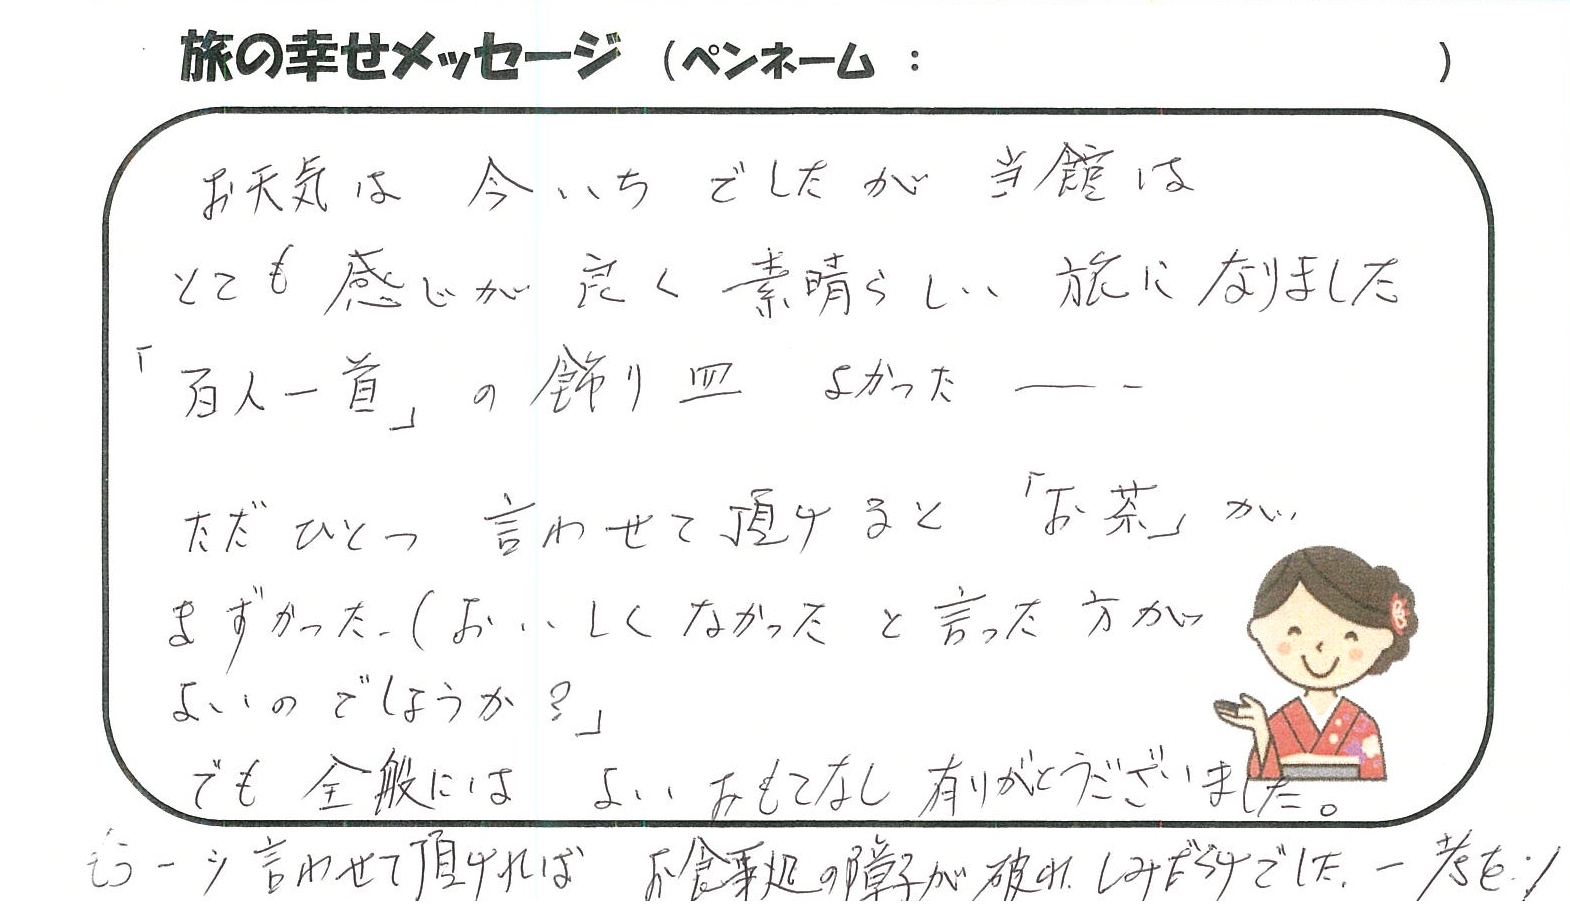 旅の幸せメッセージ (ペンネーム : )
お天気は 今いち でしたが 当館は
とても 感じが 良く 素晴らしい 旅に なりました
「百人一首」の 飾り皿 よかった ― -
ただ ひとつ 言わせて 頂けると 「お茶」が、
まずかった.(おいしくなかった と 言った 方が
よいの でしょうか?」
でも 全般には よい おもてなし 有りがとうございました。
もう一ツ 言わせて頂ければ お食事処の障子が破れ しみだらけでした. 一考を!